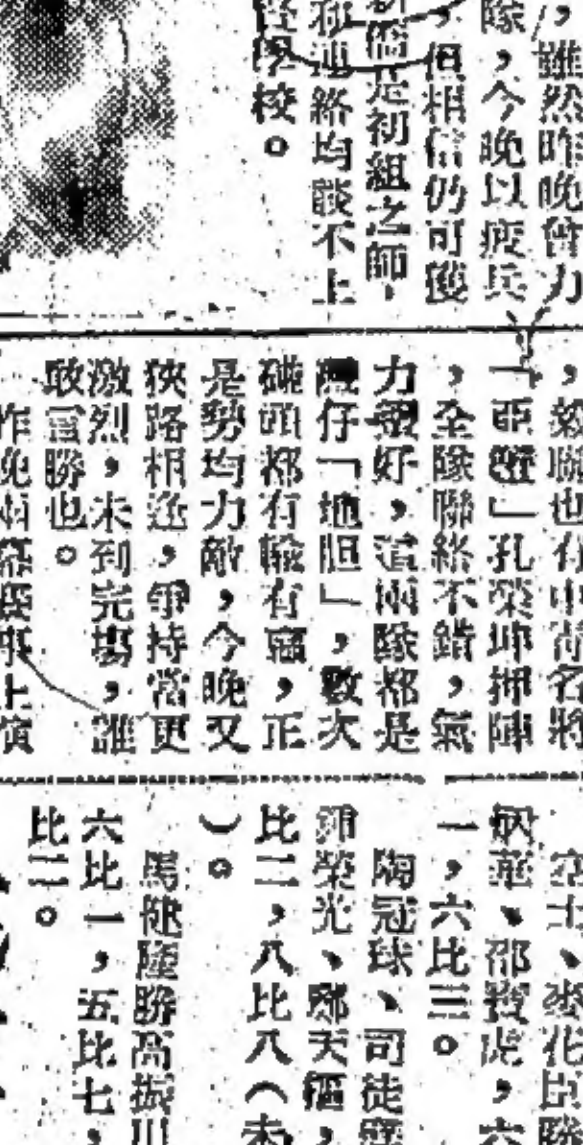 ，雖然昨晚曾力
隊，今晚以疲兵
，但相信仍可獲
僑是初組之師，
和連絡均談不上
學校。
，聯也有中名將
一亞」孔榮坤押陣
，全隊聯絡不錯，氣
力最好，這兩隊都是
仔「地胆」，數次
碰頭都有輸有贏，正
是勢均力敵，今晚又
狹路相逢，爭持當更
激烈，未到完場，誰
敢言勝也。
昨晚兩幕賽事上演
士、麥花臣勝
炳華、邵寶虎，六
一，六比三。
陶冠球、司徒
榮光、鄭天福，
比二，八比八（未
）。
馬健陸勝高振川
六比一，五比七，
比二。